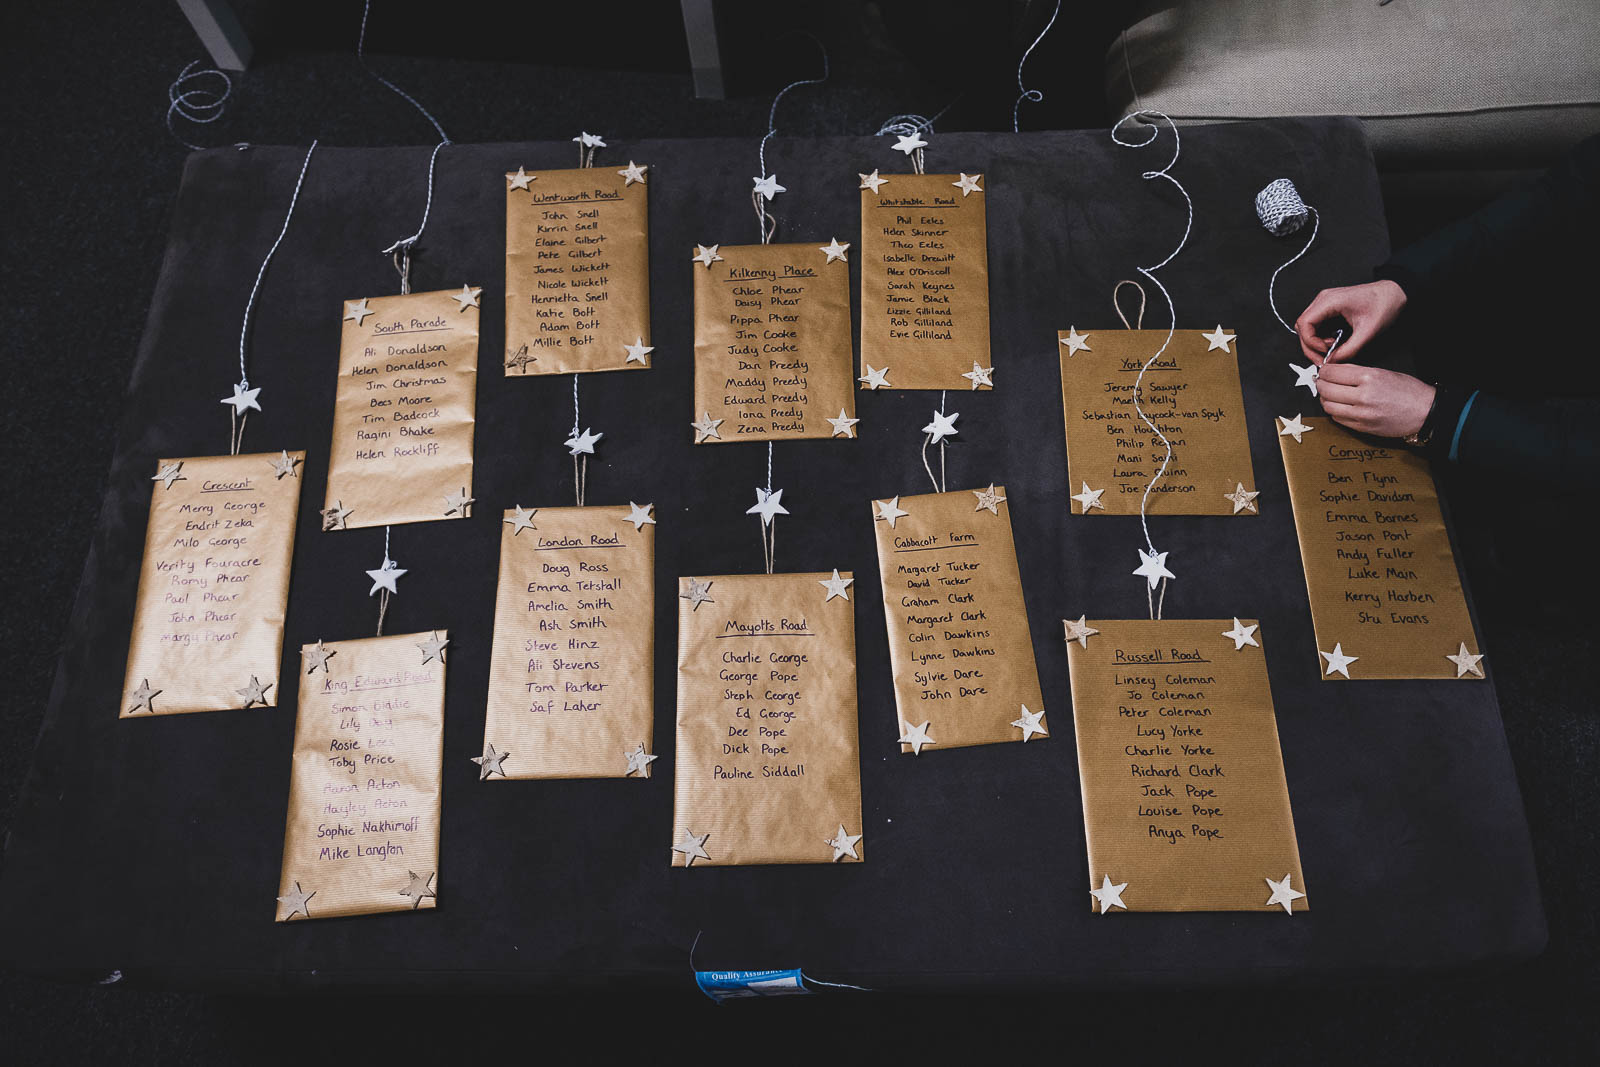 Crescent
Merry George
Endrit Zeka
Milo George
Verity Fouracre
Romy Phear
Paul Phear
John Phear
Margy Phear
South Parade
Ali Donaldson
Helen Donaldson
Jim Christmas
Becs Moore
Tim Badcock
Ragini Bhake
Helen Rockliff
King Edward Road
Simon Diddie
Lily Day
Rosie Lees
Toby Price
Aaron Acton
Hayley Acton
Sophie Nakhimoff
Mike Langton
Wentworth Road
John Snell
Kirrin Snell
Elaine Gilbert
Pete Gilbert
James Wickett
Nicole Wickett
Henrietta Snell
Katie Bott
Adam Bott
Millie Bott
London Road
Doug Ross
Emma Tetstall
Amelia Smith
Ash Smith
Steve Hinz
Ali Stevens
Tom Parker
Saf Laher
Kilkenny Place
Chloe Phear
Daisy Phear
Pippa Phear
Jim Cooke
Judy Cooke
Dan Preedy
Maddy Preedy
Edward Preedy
Iona Preedy
Zena Preedy
Mayotts Road
Charlie George
George Pope
Steph George
Ed George
Dee Pope
Dick Pope
Pauline Siddall
Whitstable Road
Phil Eeles
Helen Skinner
Theo Eeles
Isabelle Drewitt
Alex O'Driscoll
Sarah Keynes
Jamie Black
Lizzie Gilliland
Rob Gilliland
Evie Gilliland
Cabbacott Farm
Margaret Tucker
David Tucker
Graham Clark
Margaret Clark
Colin Dawkins
Lynne Dawkins
Sylvie Dare
John Dare
York Road
Jeremy Sawyer
Maeth Kelly
Sebastian Laycock-van Spyk
Ben Houghton
Philip Regan
Mani Saini
Laura Quinn
Joe Sanderson
Russell Road
Linsey Coleman
Jo Coleman
Peter Coleman
Lucy Yorke
Charlie Yorke
Richard Clark
Jack Pope
Louise Pope
Anya Pope
Conygre
Ben Flynn
Sophie Davidson
Emma Barnes
Jason Pont
Andy Fuller
Luke Main
Kerry Harben
Stu Evans
Quality Assurance